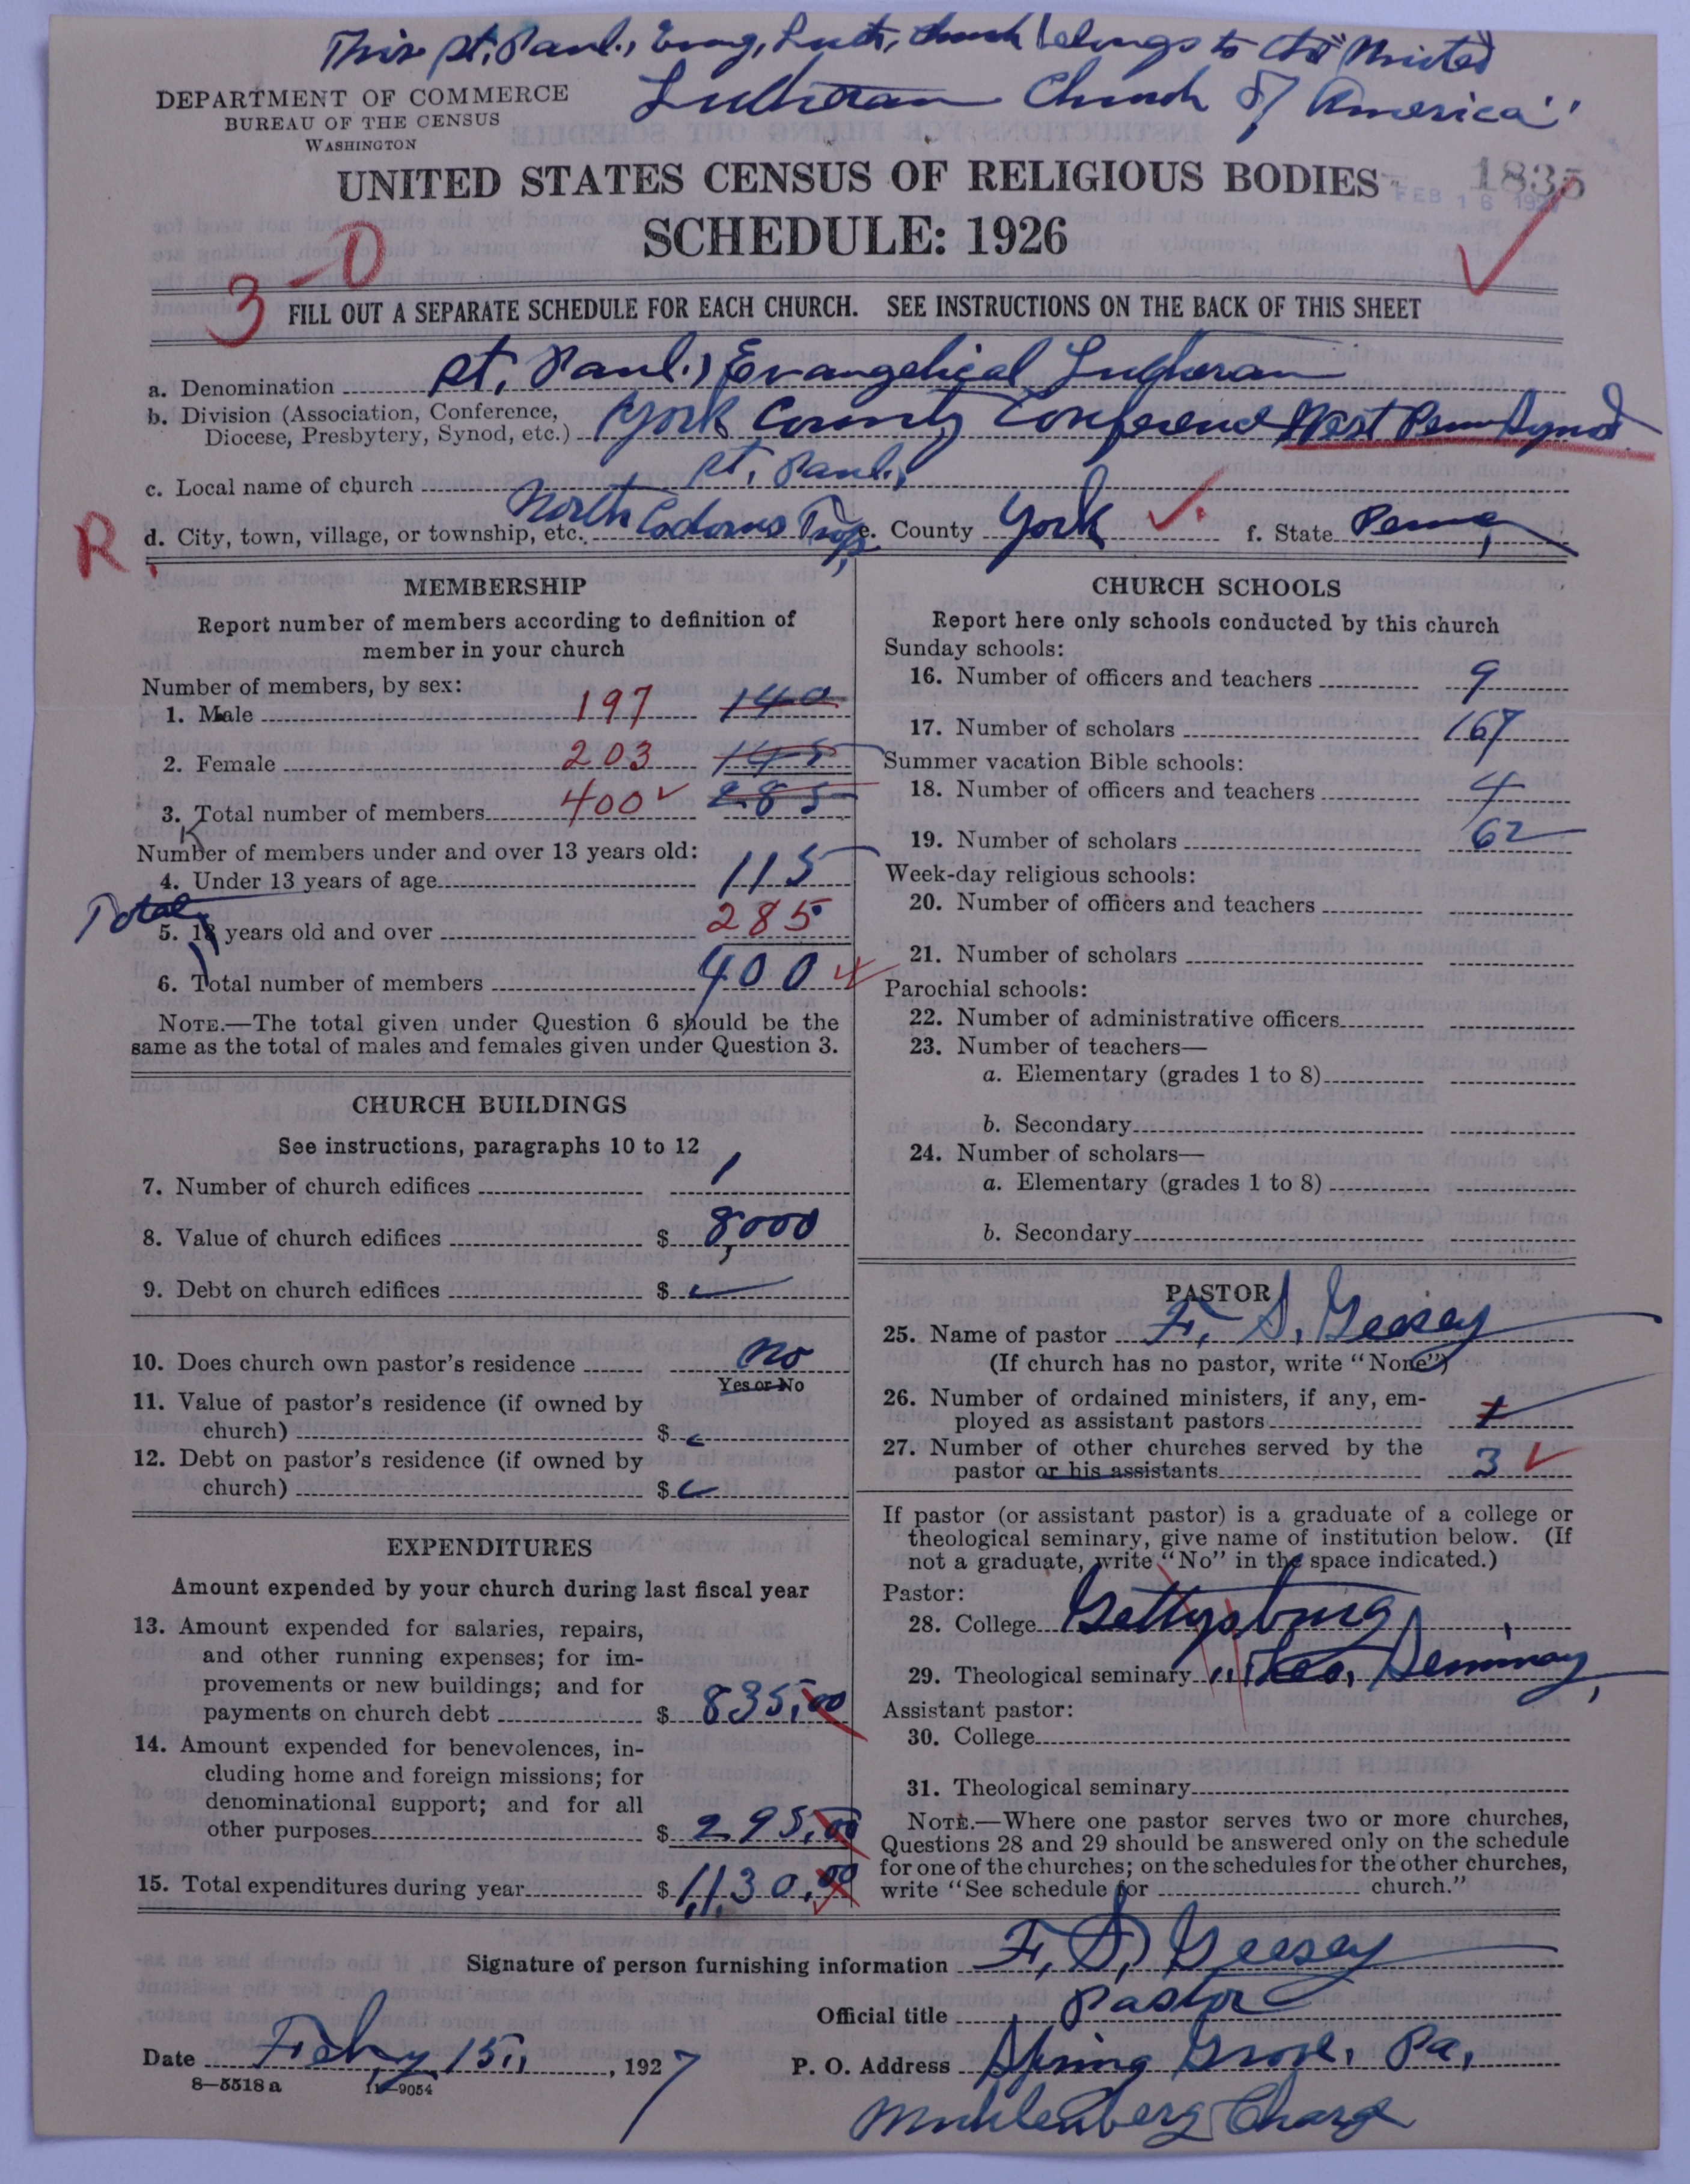 This St. Paul's Evang. Luth. Church belongs to the "United
Lutheran Church of America"
DEPARTMENT OF COMMERCE
BUREAU OF THE CENSUS
WASHINGTON
UNITED STATES CENSUS OF RELIGIOUS BODIES
1835
FEB 16 1927
SCHEDULE: 1926
3-0
FILL OUT A SEPARATE SCHEDULE FOR EACH CHURCH. SEE INSTRUCTIONS ON THE BACK OF THIS SHEET
a. Denomination St. Paul's Evangelical Lutheran
b. Division (Association, Conference, Diocese, Presbytery, Synod, etc.) York County Conference West Penn Synod
c. Local name of church St. Paul's
R.
d. City, town, village, or township, etc. North Codorus Twp. e. County York f. State Penna
MEMBERSHIP
Report number of members according to definition of
member in your church
Number of members, by sex:
1. Male 197 140
2. Female 203 145
3. Total number of members 400 285
Number of members under and over 13 years old:
4. Under 13 years of age 115
Total
5. 13 years old and over 285
6. Total number of members 400
NOTE.—The total given under Question 6 should be the
same as the total of males and females given under Question 3.
CHURCH BUILDINGS
See instructions, paragraphs 10 to 12
7. Number of church edifices 1
8. Value of church edifices $ 8000
9. Debt on church edifices $
10. Does church own pastor's residence No
Yes or No
11. Value of pastor's residence (if owned by
church) $
12. Debt on pastor's residence (if owned by
church) $
EXPENDITURES
Amount expended by your church during last fiscal year
13. Amount expended for salaries, repairs,
and other running expenses; for im-
provements or new buildings; and for
payments on church debt $ 835.00
14. Amount expended for benevolences, in-
cluding home and foreign missions; for
denominational support; and for all
other purposes $ 295.00
15. Total expenditures during year $ 1,130.00
CHURCH SCHOOLS
Report here only schools conducted by this church
Sunday schools:
16. Number of officers and teachers 9
17. Number of scholars 167
Summer vacation Bible schools:
18. Number of officers and teachers 4
19. Number of scholars 62
Week-day religious schools:
20. Number of officers and teachers
21. Number of scholars
Parochial schools:
22. Number of administrative officers
23. Number of teachers—
a. Elementary (grades 1 to 8)
b. Secondary
24. Number of scholars—
a. Elementary (grades 1 to 8)
b. Secondary
PASTOR
25. Name of pastor F. S. Geesey
(If church has no pastor, write "None")
26. Number of ordained ministers, if any, em-
ployed as assistant pastors
27. Number of other churches served by the
pastor or his assistants 3
If pastor (or assistant pastor) is a graduate of a college or
theological seminary, give name of institution below. (If
not a graduate, write "No" in the space indicated.)
Pastor:
28. College Gettysburg
29. Theological seminary " Theo. Seminary,
Assistant pastor:
30. College
31. Theological seminary
NOTE.—Where one pastor serves two or more churches,
Questions 28 and 29 should be answered only on the schedule
for one of the churches; on the schedules for the other churches,
write "See schedule for church."
Signature of person furnishing information F. S. Geesey
Official title Pastor
Date Feby 15, 1927
P. O. Address Spring Grove, Pa.
8—5518 a 11—9054
Muhlenberg Charge